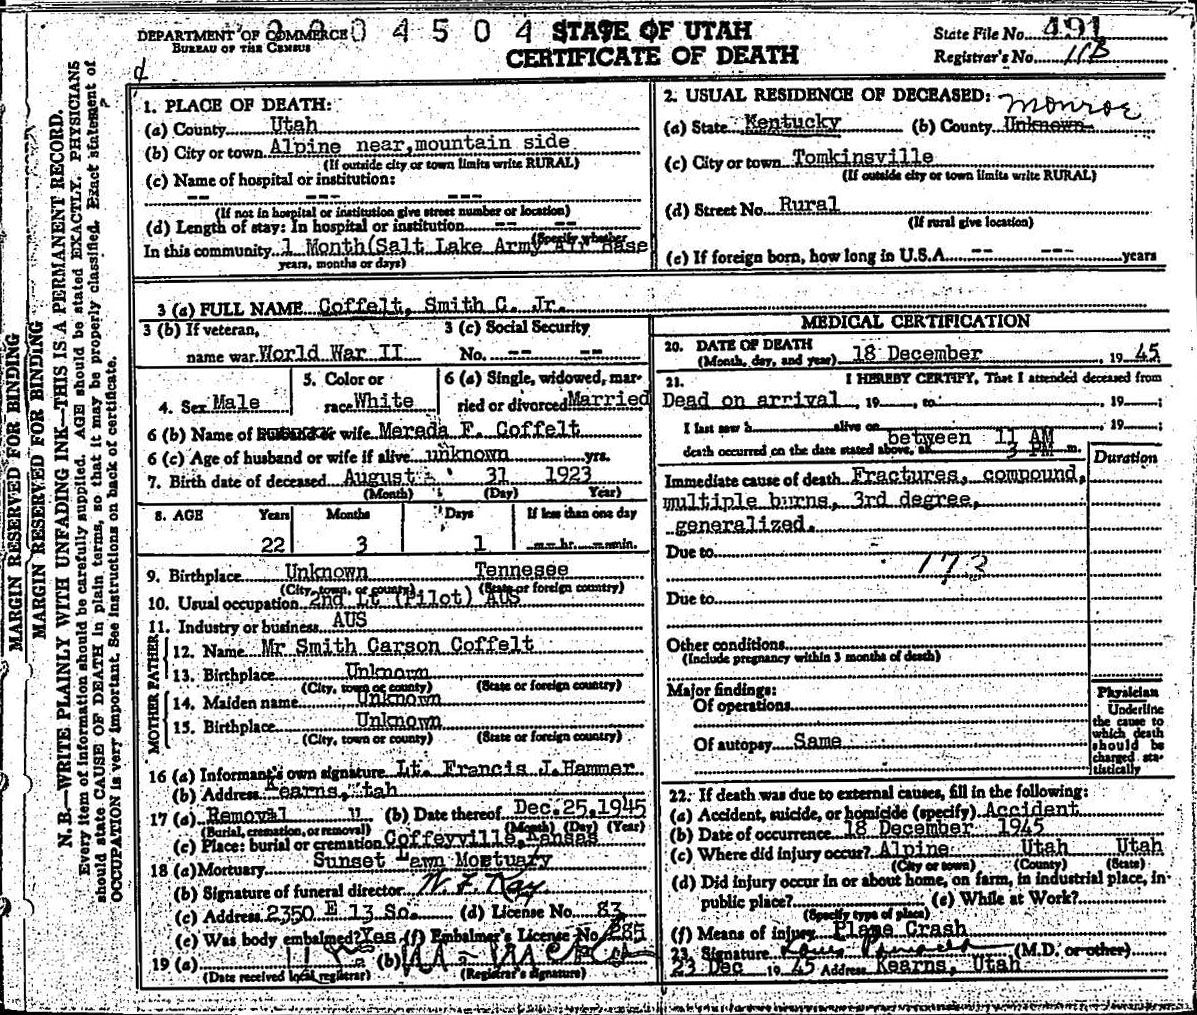 DEPARTMENT OF COMMERCE
BUREAU OF THE CENSUS
0 4 5 0 4
STATE OF UTAH
CERTIFICATE OF DEATH
State File No. 491
Registrar's No. 11B
MARGIN RESERVED FOR BINDING
MARGIN RESERVED FOR BINDING
N. B.—WRITE PLAINLY WITH UNFADING INK—THIS IS A PERMANENT RECORD.
Every item of information should be carefully supplied. AGE should be stated EXACTLY. PHYSICIANS
should state CAUSE OF DEATH in plain terms, so that it may be properly classified. Exact statement of
OCCUPATION is very important. See instructions on back of certificate.
1. PLACE OF DEATH:
(a) County Utah
(b) City or town Alpine near,mountain side
(If outside city or town limits write RURAL)
(c) Name of hospital or institution:
-- --- ---
(If not in hospital or institution give street number or location)
(d) Length of stay: In hospital or institution -- --
(Specify whether
In this community 1 Month(Salt Lake Army Air Base
years, months or days)
2. USUAL RESIDENCE OF DECEASED:
Monroe
(a) State Kentucky (b) County Unknown
(c) City or town Tomkinsville
(If outside city or town limits write RURAL)
(d) Street No. Rural
(If rural give location)
(e) If foreign born, how long in U.S.A. -- --- years
3 (a) FULL NAME Coffelt, Smith C. Jr.
3 (b) If veteran,
name war World War II
3 (c) Social Security
No. -- --
4. Sex Male
5. Color or
race White
6 (a) Single, widowed, mar-
ried or divorced Married
6 (b) Name of husband or wife Merada F. Coffelt
6 (c) Age of husband or wife if alive unknown yrs.
7. Birth date of deceased August 31 1923
(Month) (Day) Year)
8. AGE Years Months Days If less than one day
22 3 1 --hr. --min.
9. Birthplace Unknown Tennesee
(City, town, or county) (State or foreign country)
10. Usual occupation 2nd Lt (Pilot) AUS
11. Industry or business AUS
FATHER
12. Name Mr Smith Carson Coffelt
13. Birthplace Unknown
(City, town or county) (State or foreign country)
MOTHER
14. Maiden name Unknown
15. Birthplace Unknown
(City, town or county) (State or foreign country)
16 (a) Informant's own signature Lt. Francis J.Hammer
(b) Address Kearns,Utah
17 (a) Removal (b) Date thereof Dec.25,1945
(Burial, cremation, or removal) (Month) (Day) (Year)
(c) Place: burial or cremation Coffeyville,Kansas
18 (a) Mortuary Sunset Lawn Mortuary
(b) Signature of funeral director W. L. Kay
(c) Address 2350 E 13 So. (d) License No. 83
(e) Was body embalmed? Yes (f) Embalmer's License No. 285
19 (a) (b)
(Date received local registrar) (Registrar's signature)
MEDICAL CERTIFICATION
20. DATE OF DEATH
(Month, day, and year) 18 December , 19 45
21. I HEREBY CERTIFY, That I attended deceased from
Dead on arrival , 19 , to , 19 ;
I last saw h alive on , 19 ;
between 11 AM
death occurred on the date stated above, at 3 PM m.
Duration
Immediate cause of death Fractures, compound,
multiple burns, 3rd degree,
generalized.
Due to
173
Due to
Other conditions
(Include pregnancy within 3 months of death)
Major findings:
Of operations
Of autopsy Same
Physician
Underline
the cause to
which death
should be
charged sta-
tistically
22. If death was due to external causes, fill in the following:
(a) Accident, suicide, or homicide (specify) Accident
(b) Date of occurrence 18 December 1945
(c) Where did injury occur? Alpine Utah Utah
(City or town) (County) (State)
(d) Did injury occur in or about home, on farm, in industrial place, in
public place? (e) While at Work?
(Specify type of place)
(f) Means of injury Plane Crash
23. Signature (M.D. or other)
23 Dec 19 45 Address Kearns, Utah